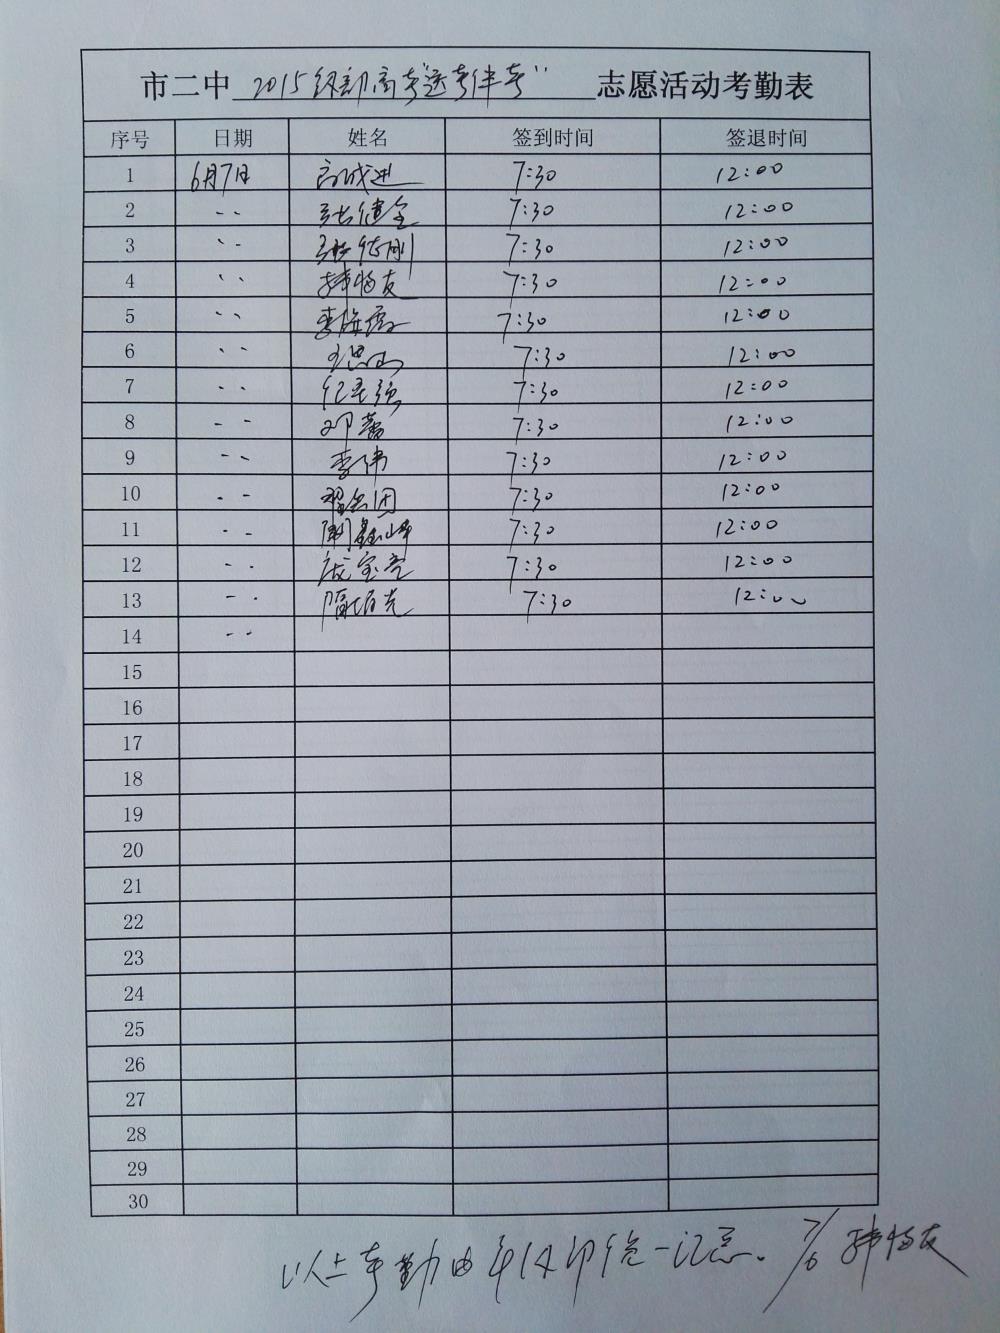 市二中 2015级部高考"送考伴考" 志愿活动考勤表
序号 日期 姓名 签到时间 签退时间
1 6月7日 高成进 7:30 12:00
2 〃 张健全 7:30 12:00
3 〃 7:30 12:00
4 〃 韩怡友 7:30 12:00
5 〃 李海霞 7:30 12:00
6 〃 王思山 7:30 12:00
7 〃 纪圣强 7:30 12:00
8 〃 邓蕾 7:30 12:00
9 〃 李伟 7:30 12:00
10 〃 7:30 12:00
11 〃 7:30 12:00
12 〃 庞宝亮 7:30 12:00
13 〃 7:30 12:00
14 〃
15
16
17
18
19
20
21
22
23
24
25
26
27
28
29
30
以上考勤由 统一记录。 7/6 韩怡友